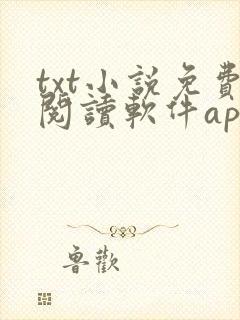 txt小說免費
閱讀軟件ap
魯歡